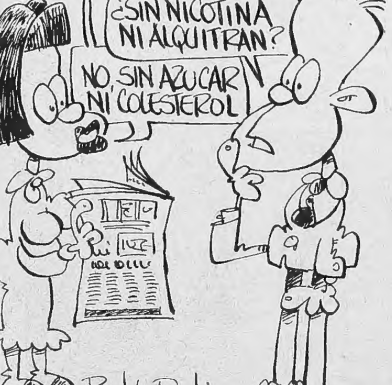 ¿SIN NICOTINA
NI ALQUITRAN?
NO, SIN AZUCAR
NI COLESTEROL